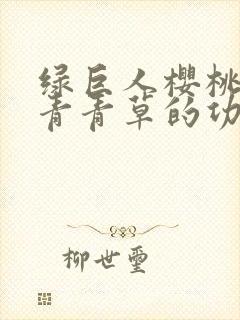 绿巨人樱桃
青青草的功
柳世玺